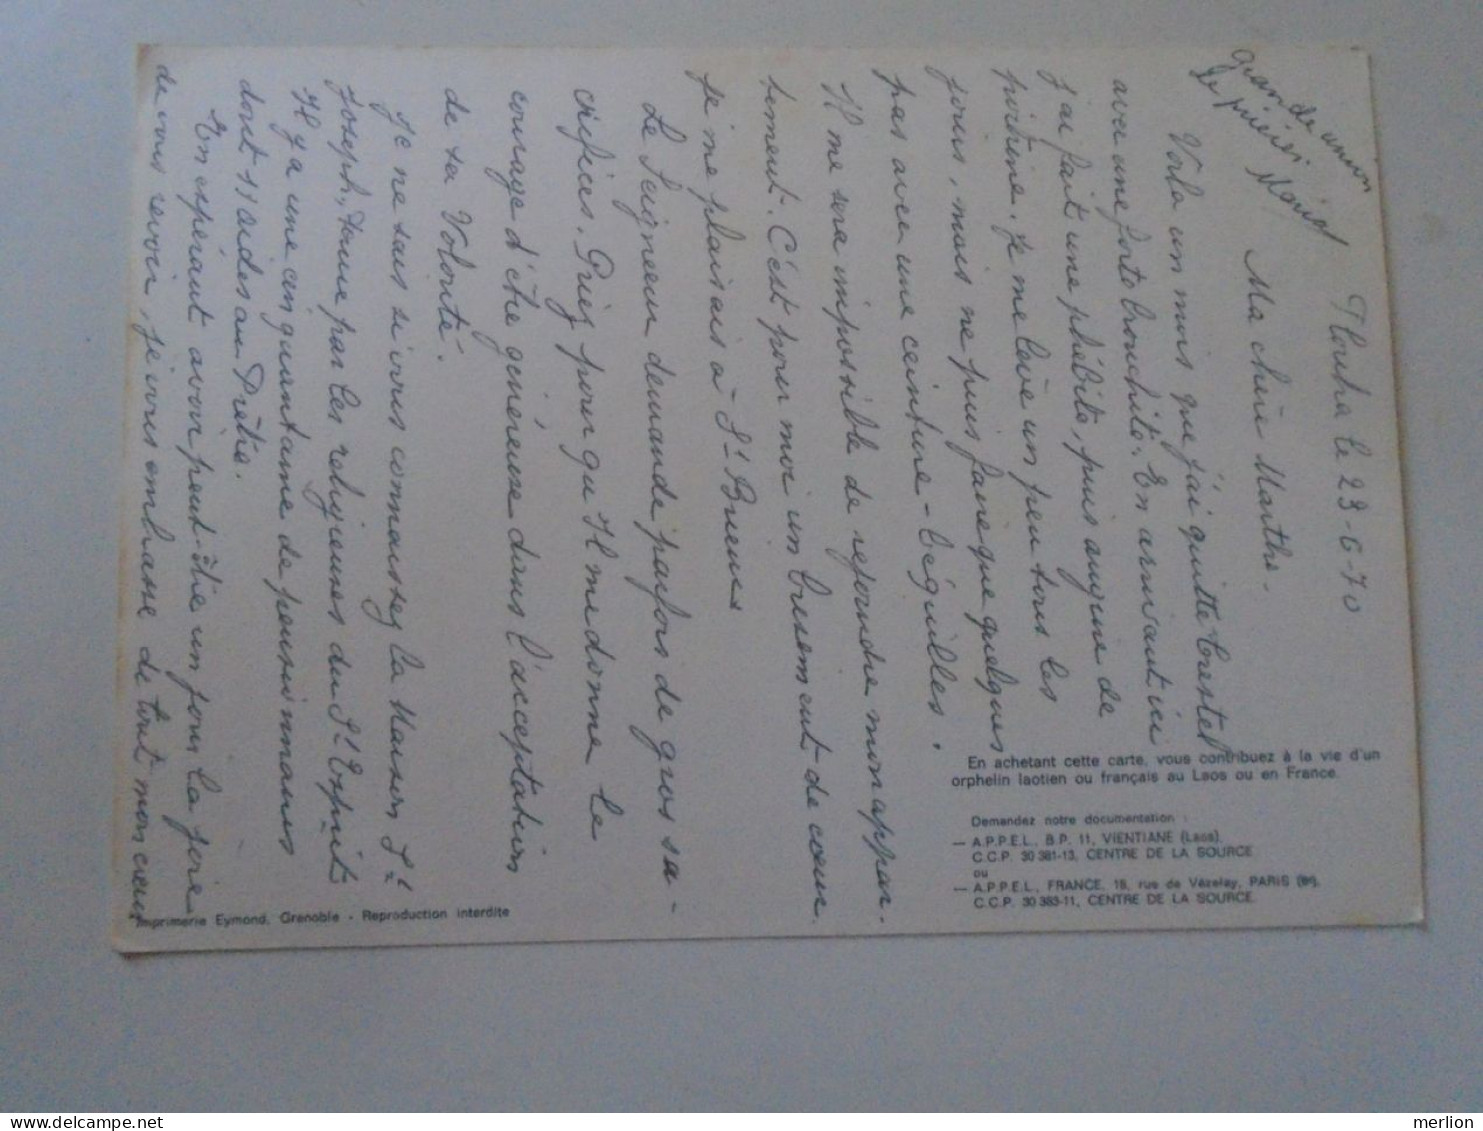 Plouha le 23-6-70
Ma chère Marthe.
Voila un mois que j'ai quitté Crestel
avec une forte bronchite. En arrivant ici
j'ai fait une phébite, puis angine de
poitrine. Je me lève un peu tous les
jours, mais ne puis faire que quelques
pas avec une ceinture - béquilles.
Il me sera impossible de reprendre mon appar-
tement. C'est pour moi un brisement de cœur
je me plaisais à St Brieuc
Le Seigneur demande parfois de gros sa-
crifices. Priez pour qu'Il me donne le
courage d'être généreuse dans l'acceptation
de sa Volonté.
Je ne sais si vous connaissez la Maison St
Joseph, tenue par les religieuses du St Esprit
Il y a une cinquantaine de pensionnaires
dont 11 aides au Prêtre.
En espérant avoir peut-être un jour la joie
de vous revoir, je vous embrasse de tout mon cœur
Grande union
de prières
Maria
En achetant cette carte, vous contribuez à la vie d'un
orphelin laotien ou français au Laos ou en France.
Demandez notre documentation :
— A.P.P.E.L., B.P. 11, VIENTIANE (Laos),
C.C.P. 30 381-13, CENTRE DE LA SOURCE
ou
— A.P.P.E.L., FRANCE, 18, rue de Vézelay, PARIS (8e),
C.C.P. 30 383-11, CENTRE DE LA SOURCE.
Imprimerie Eymond, Grenoble - Reproduction interdite
merlion